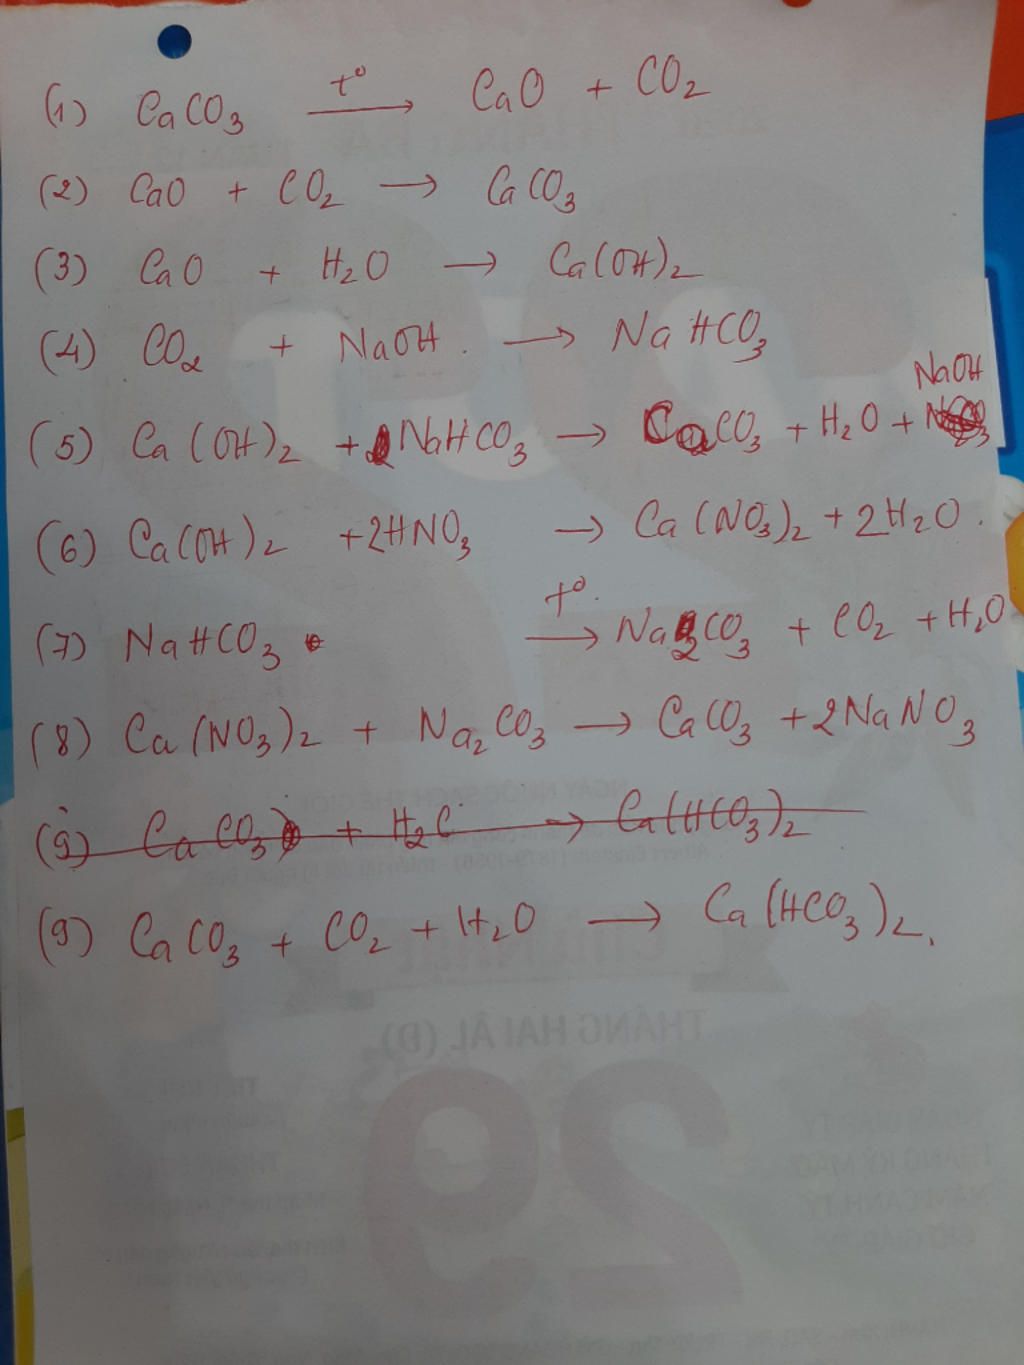 (1) CaCO3 t° → CaO + CO2
(2) CaO + CO2 → CaCO3
(3) CaO + H2O → Ca(OH)2
(4) CO2 + NaOH → NaHCO3
NaOH
(5) Ca(OH)2 + NaHCO3 → CaCO3 + H2O +
(6) Ca(OH)2 + 2HNO3 → Ca(NO3)2 + 2H2O.
(7) NaHCO3 t° → Na2CO3 + CO2 + H2O
(8) Ca(NO3)2 + Na2CO3 → CaCO3 + 2NaNO3
(9) CaCO3 + H2C → Ca(HCO3)2
(9) CaCO3 + CO2 + H2O → Ca(HCO3)2.
THÁNG HAI ÂL (Đ)
29